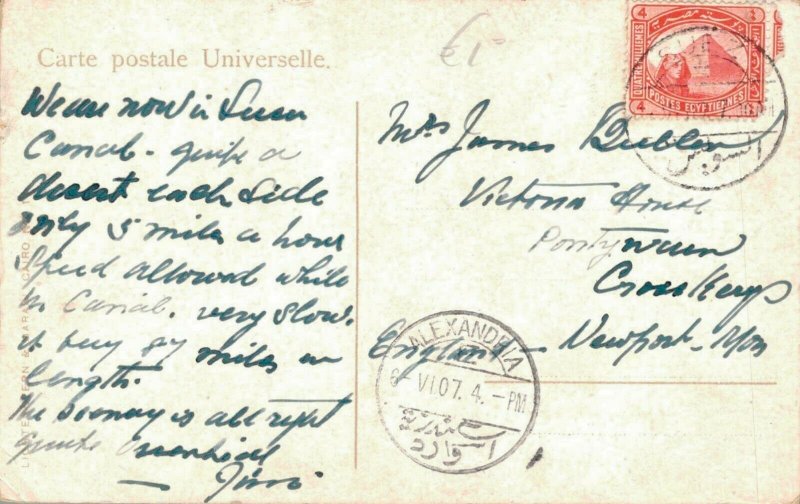 Carte postale Universelle.
We are now in Suez
Canal - quite a
desert each side
only 5 miles a hour
Speed allowed while
in Canal. very slow.
it being 87 miles in
length.
The scenery is all right
quite
— Jim
Mrs James
Victoria House
Pontywaun
Cross Keys
Newport - Mon
England
QUATRE MILLIEMES
POSTES EGYPTIENNES
4 4
ALEXANDRIA
6 - VI 07. 4. - PM
اسكندرية
وارد
السويس
CAIRO